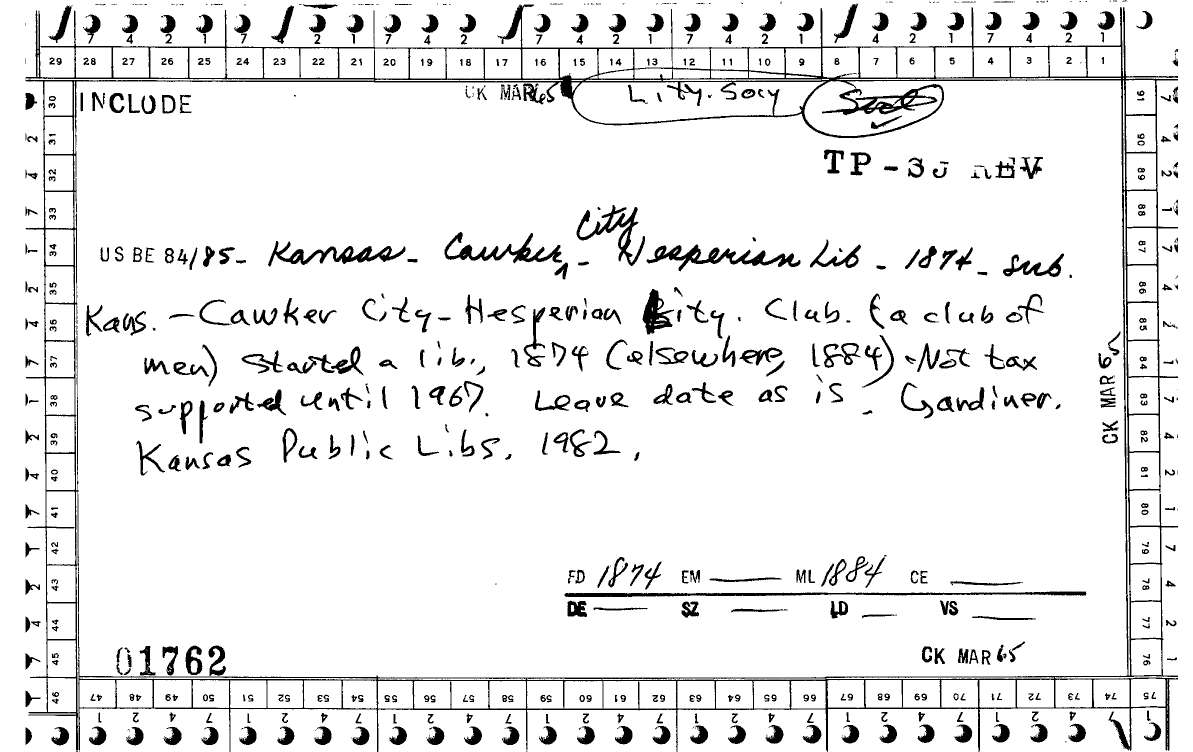 7 4 2 1 7 4 2 1 7 4 2 1 7 4 2 1 7 4 2 1 7 4 2 1 7 4 2 1
29 28 27 26 25 24 23 22 21 20 19 18 17 16 15 14 13 12 11 10 9 8 7 6 5 4 3 2 1
INCLUDE CK MAR 65 Lity. Socy
TP - REV
City
US BE 84/85 - Kansas - Cawker ^ - Hesperian Lib - 1874 - sub.
Kans. - Cawker City - Hesperian Lity. Club. (a club of
men) started a lib., 1874 (elsewhere, 1884) - Not tax
supported until 1967. Leave date as is - Gardiner.
Kansas Public Libs, 1982.
CK MAR 65
FD 1874 EM ML 1884 CE
DE SZ LD VS
CK MAR 65
01762
30 31 32 33 34 35 36 37 38 39 40 41 42 43 44 45 46
91 90 89 88 87 86 85 84 83 82 81 80 79 78 77 76
47 48 49 50 51 52 53 54 55 56 57 58 59 60 61 62 63 64 65 66 67 68 69 70 71 72 73 74 75
1 2 4 7 1 2 4 7 1 2 4 7 1 2 4 7 1 2 4 7 1 2 4 7 1 2 4 7